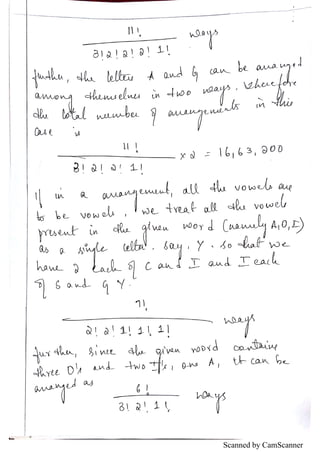 11! ways
3! 2! 2! 2! 1!
further, the letters A and G can be arranged
among themselves in two ways. Therefore
the total number of arrangements in this
case is
11! × 2 = 16,63,200
3! 2! 2! 1!
If in a arrangement, all the vowels are
to be vowels, we treat all the vowels
present in the given word (namely A,O,I)
as a single letter. say, Y. so that we
have 2 each of C and I and I each
of S and G Y.
7! ways
2! 2! 1! 1! 1!
further, since the given word contains
three O's and two I's, one A, it can be
arranged as
6! ways
3! 2! 1!
Scanned by CamScanner